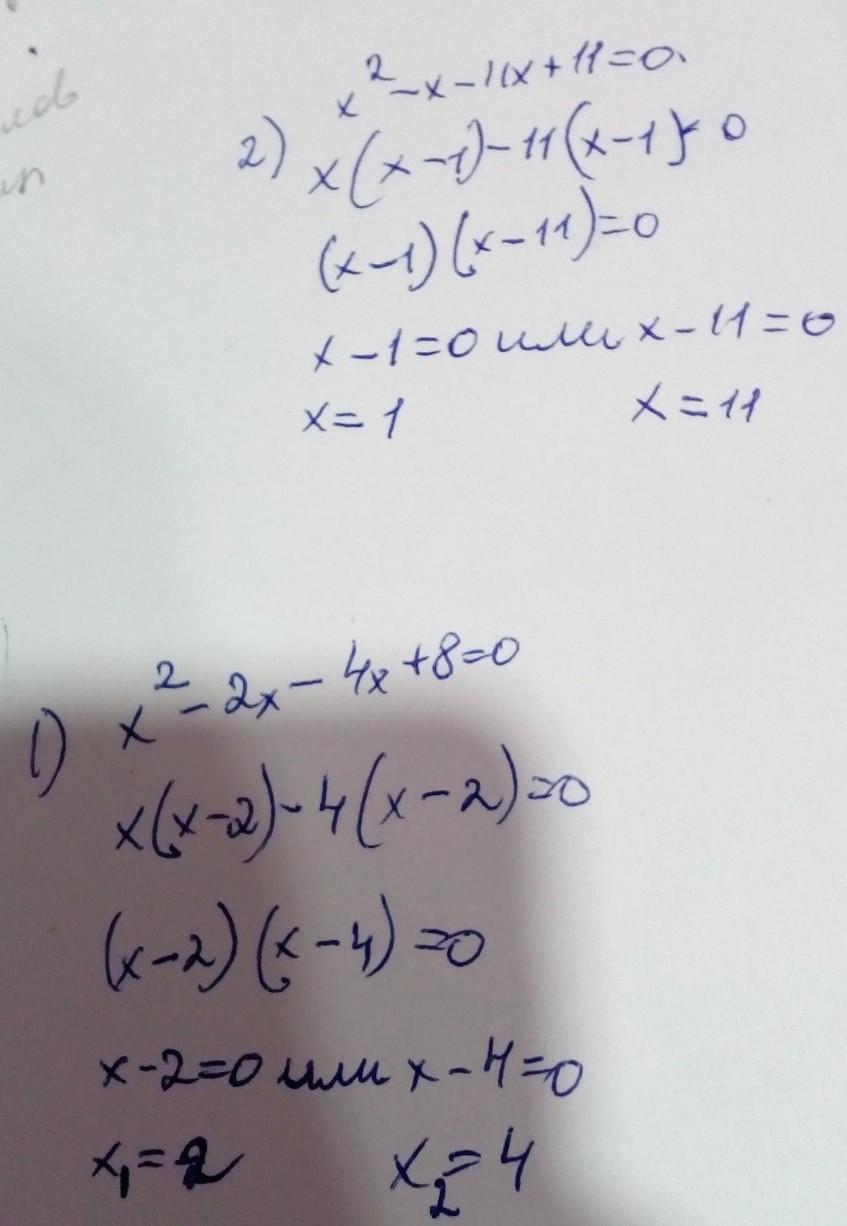 x² - x - 11x + 11 = 0
2) x(x - 1) - 11(x - 1) = 0
(x - 1)(x - 11) = 0
x - 1 = 0 или x - 11 = 0
x = 1 x = 11
1) x² - 2x - 4x + 8 = 0
x(x - 2) - 4(x - 2) = 0
(x - 2)(x - 4) = 0
x - 2 = 0 или x - 4 = 0
x₁ = 2 x₂ = 4